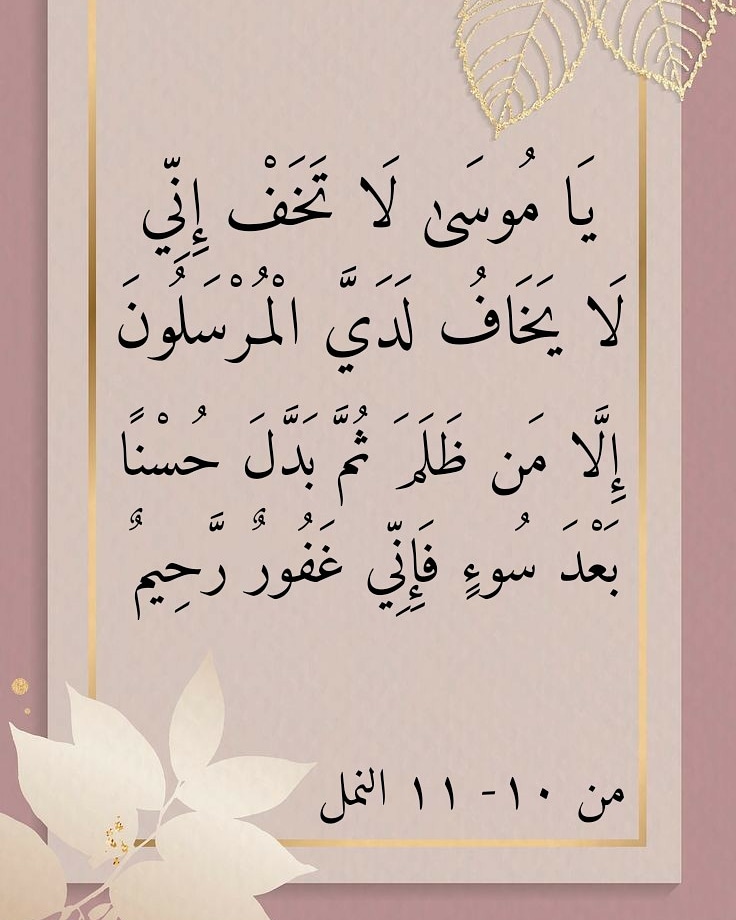 يَا مُوسَىٰ لَا تَخَفْ إِنِّي
لَا يَخَافُ لَدَيَّ الْمُرْسَلُونَ
إِلَّا مَن ظَلَمَ ثُمَّ بَدَّلَ حُسْنًا
بَعْدَ سُوءٍ فَإِنِّي غَفُورٌ رَّحِيمٌ
من ١٠- ١١ النمل